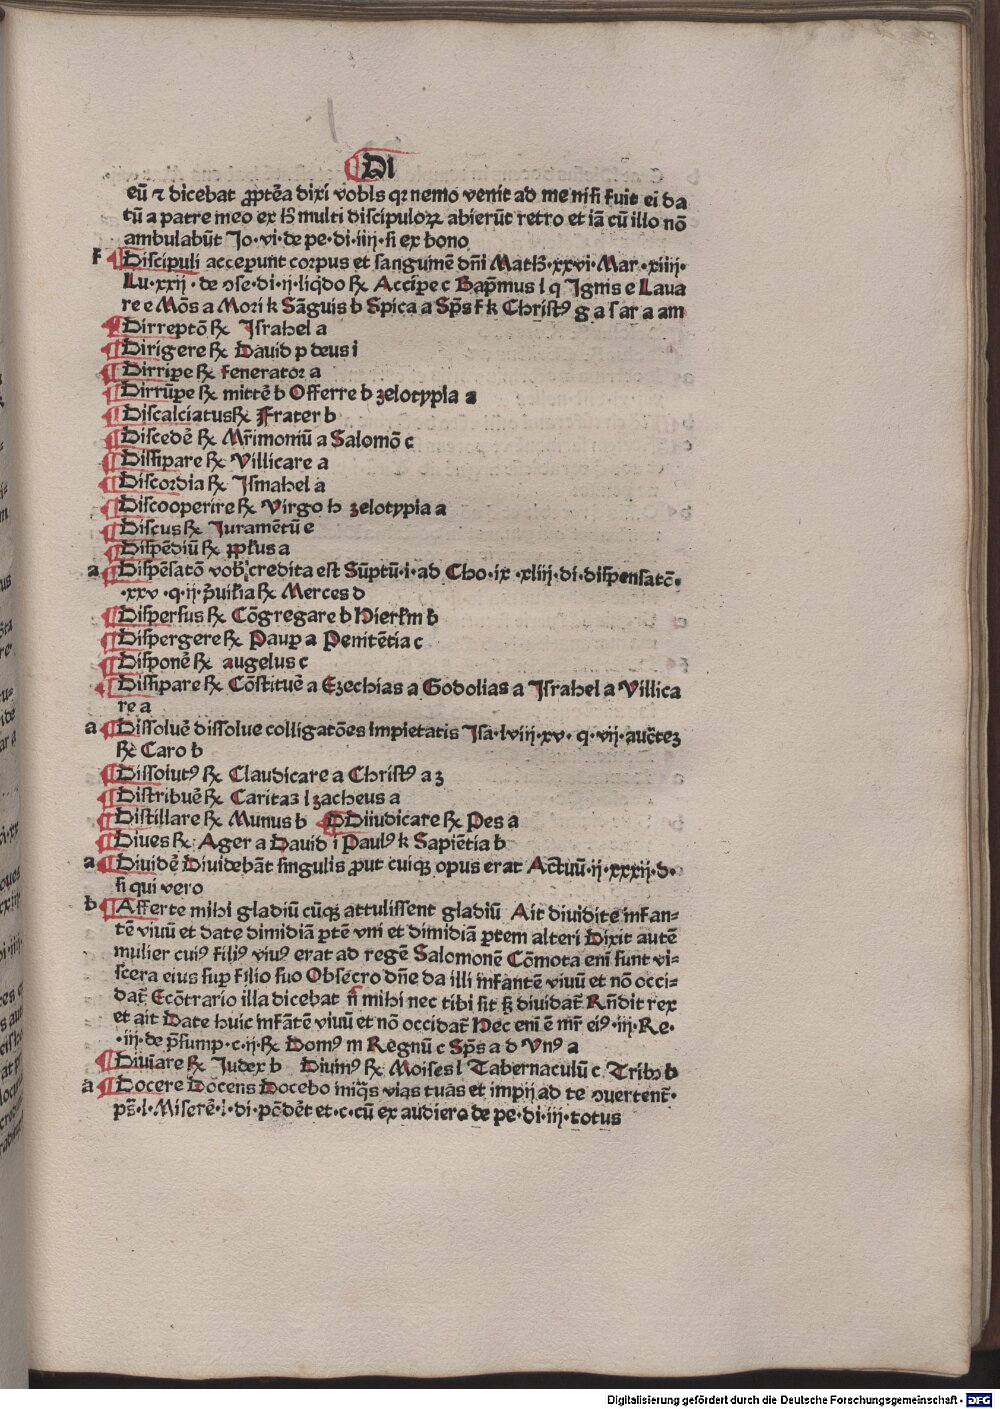 DI
eū ⁊ dicebat ꝓptēa dixi vobis qꝛ nemo venit ad me nisi fuit ei da
tū a patre meo ex ħ multi discipuloꝝ abierūt retro et iā cū illo nō
ambulabūt Jo·vi·de pe·di·iiij·si ex bono
f Discipuli acceperunt corpus et sanguinē dñi Matħ·xxvi·Mar·xiiij·
Lu·xxij·de ↄse·di·ij·liqdo ℞ Accipe c Bapm̄us l q Ignis e Laua
re e Mōs a Mori k Sāguis b Spica a Sp̄s f k Christꝰ g a s ar a am
Dirreptō ℞ Israhel a
Dirigere ℞ Dauid p deus i
Dirripe ℞ fenerator a
Dirrūpe ℞ mittē b Offerre b zelotypia a
Discalciatus ℞ Frater b
Discedē ℞ Mr̄imoniū a Salomō c
Dissipare ℞ Villicare a
Discordia ℞ Ismahel a
Discooperire ℞ Virgo h zelotypia a
Discus ℞ Juramētū e
Dispēdiū ℞ ꝓpłus a
a Dispēsatō vob̄ credita est Sūptū·i·ad Cho·ix·xliij·di·dispensatō·
·xxv·q·ij·p̄uiłia ℞ Merces d
Dispersus ℞ Cōgregare b Hierłm b
Dispergere ℞ Paup a Penitētia c
Disponē ℞ augelus c
Dissipare ℞ Cōstituē a Ezechias a Godolias a Israhel a Villica
re a
a Dissoluē dissolue colligatōes impietatis Isa·lviij·xv·q·vij·auctez
℞ Caro b
Dissolutꝰ ℞ Claudicare a Christꝰ a z
Distribuē ℞ Caritaz l zacheus a
Distillare ℞ Munus b Diiudicare ℞ Pes a
Diues ℞ Ager a Dauid i Paulꝰ k Sapiētia b
a Diuidē Diuidebāt singulis ꝓut cuiqꝫ opus erat Actuū·ij·xxxij·d·
si qui vero
b Afferte mihi gladiū cūqꝫ attulissent gladiū Ait diuidite infan-
tē viuū et date dimidiā ꝑtē vni et dimidiā ꝑtem alteri Dixit autē
mulier cuiꝰ filiꝰ viuꝰ erat ad regē Salomonē Cōmota eni sunt vi-
scera eius suꝑ filio suo Obsecro dñe da illi infantē viuū et nō occi-
dat̄ Ecōtrario illa dicebat n̄ mihi nec tibi sit sꝫ diuidat̄ Rn̄dit rex
et ait Date huic infātē viuū et nō occidat̄ Hec eni ē mr̄ eiꝰ·iij·Re·
·iij·de p̄sump·c·ij·℞ Domꝰ m Regnū c Sp̄s a d Vnꝰ a
Diuiāre ℞ Judex b Diuinꝰ ℞ Moises l Tabernaculū c Tribꝫ b
a Docere Docens Docebo iniq̄s vias tuas et impij ad te ↄuertent̄·
ps̄·l·Miserē·l·di·pēdēt et·c·cū ex audiero de pe·di·iij·totus
Digitalisierung gefördert durch die Deutsche Forschungsgemeinschaft - DFG